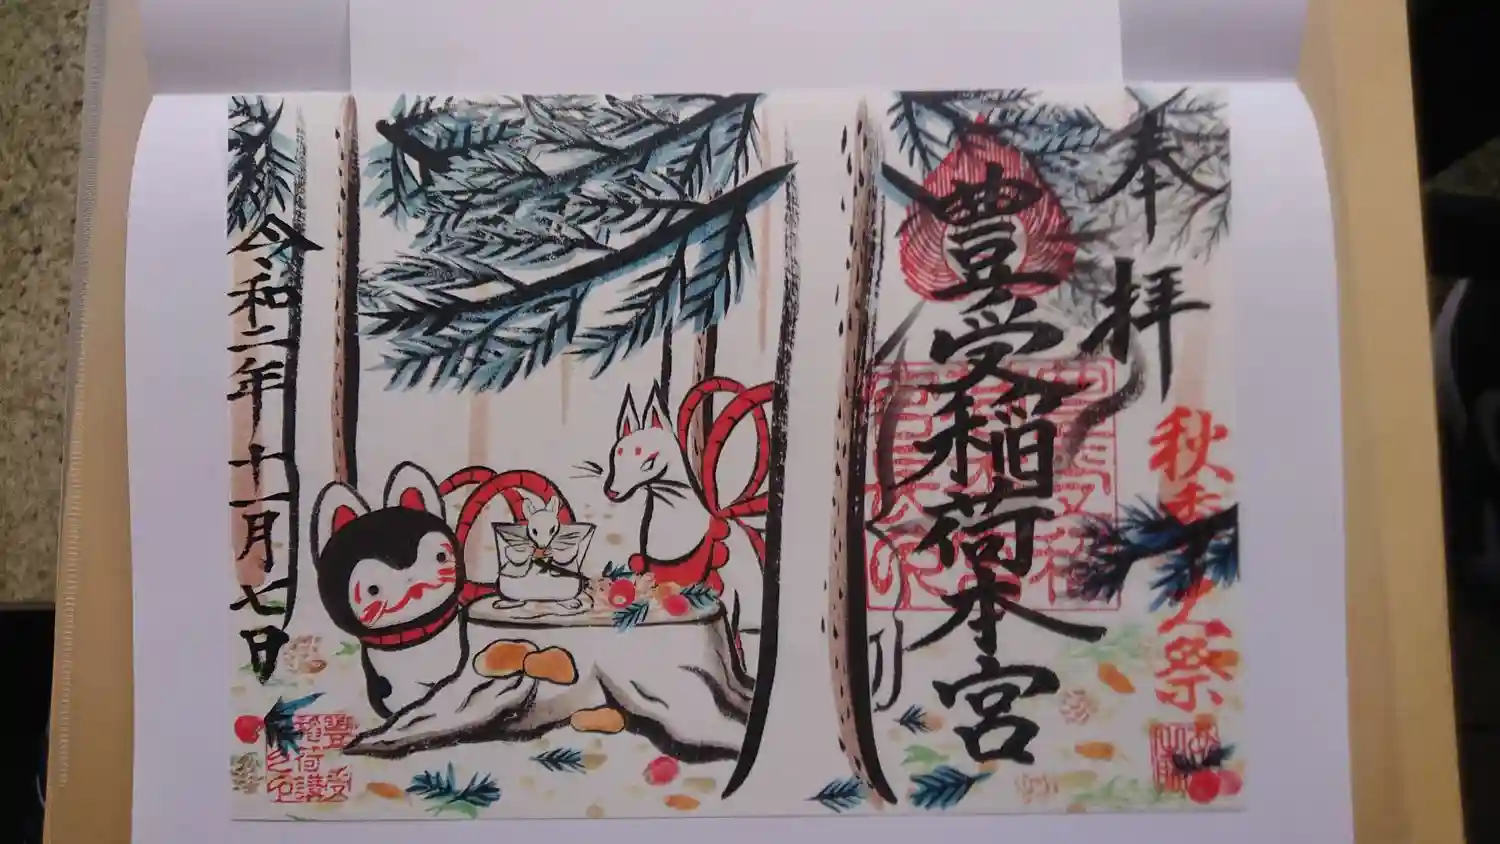 奉拝
秋季大祭
豊受稲荷本宮
令和二年十一月七日
豊受
稲荷講